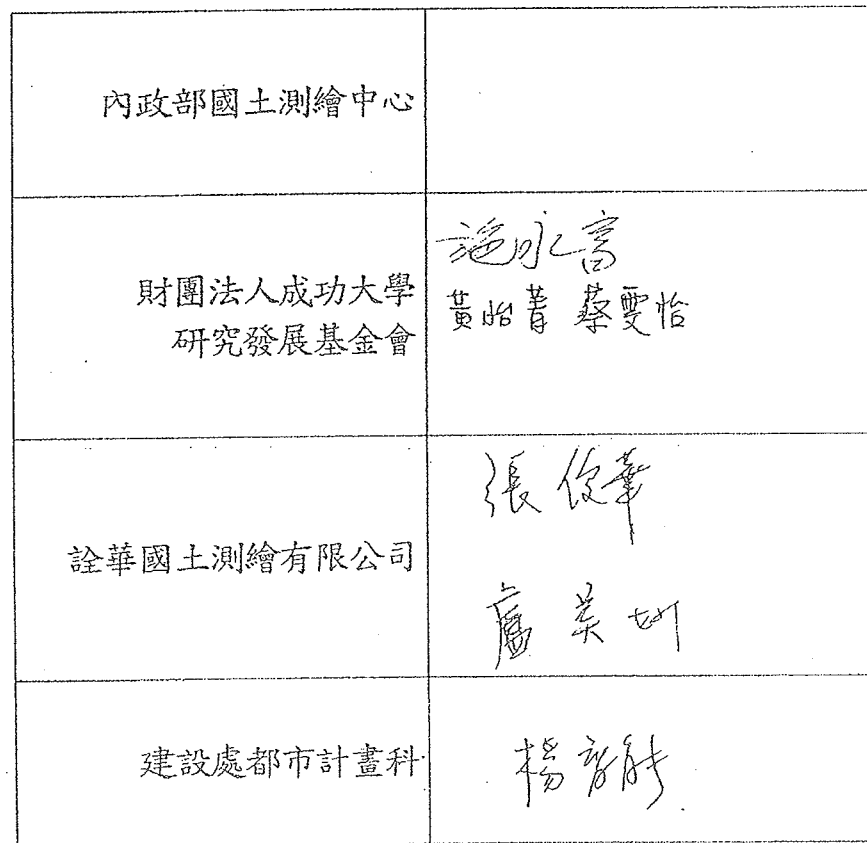 內政部國土測繪中心
財團法人成功大學
研究發展基金會
施永富
黃怡菁 蔡雯怡
詮華國土測繪有限公司
張俊華
盧美圳
建設處都市計畫科
楊